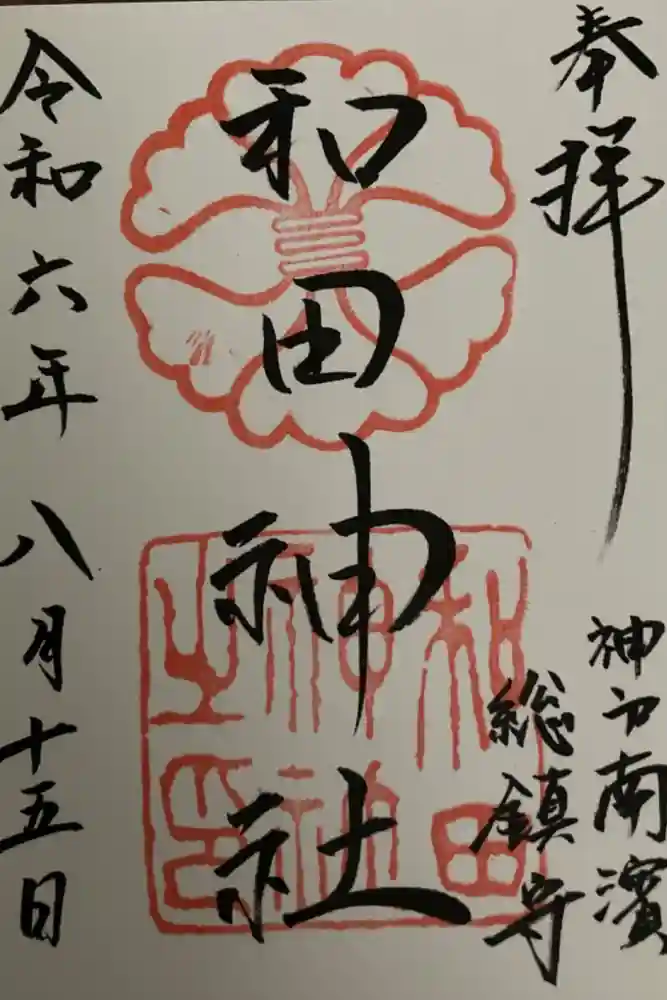 奉拝
神戸南濱
総鎮守
和田神社
和田
神社
之印
令和六年八月十五日